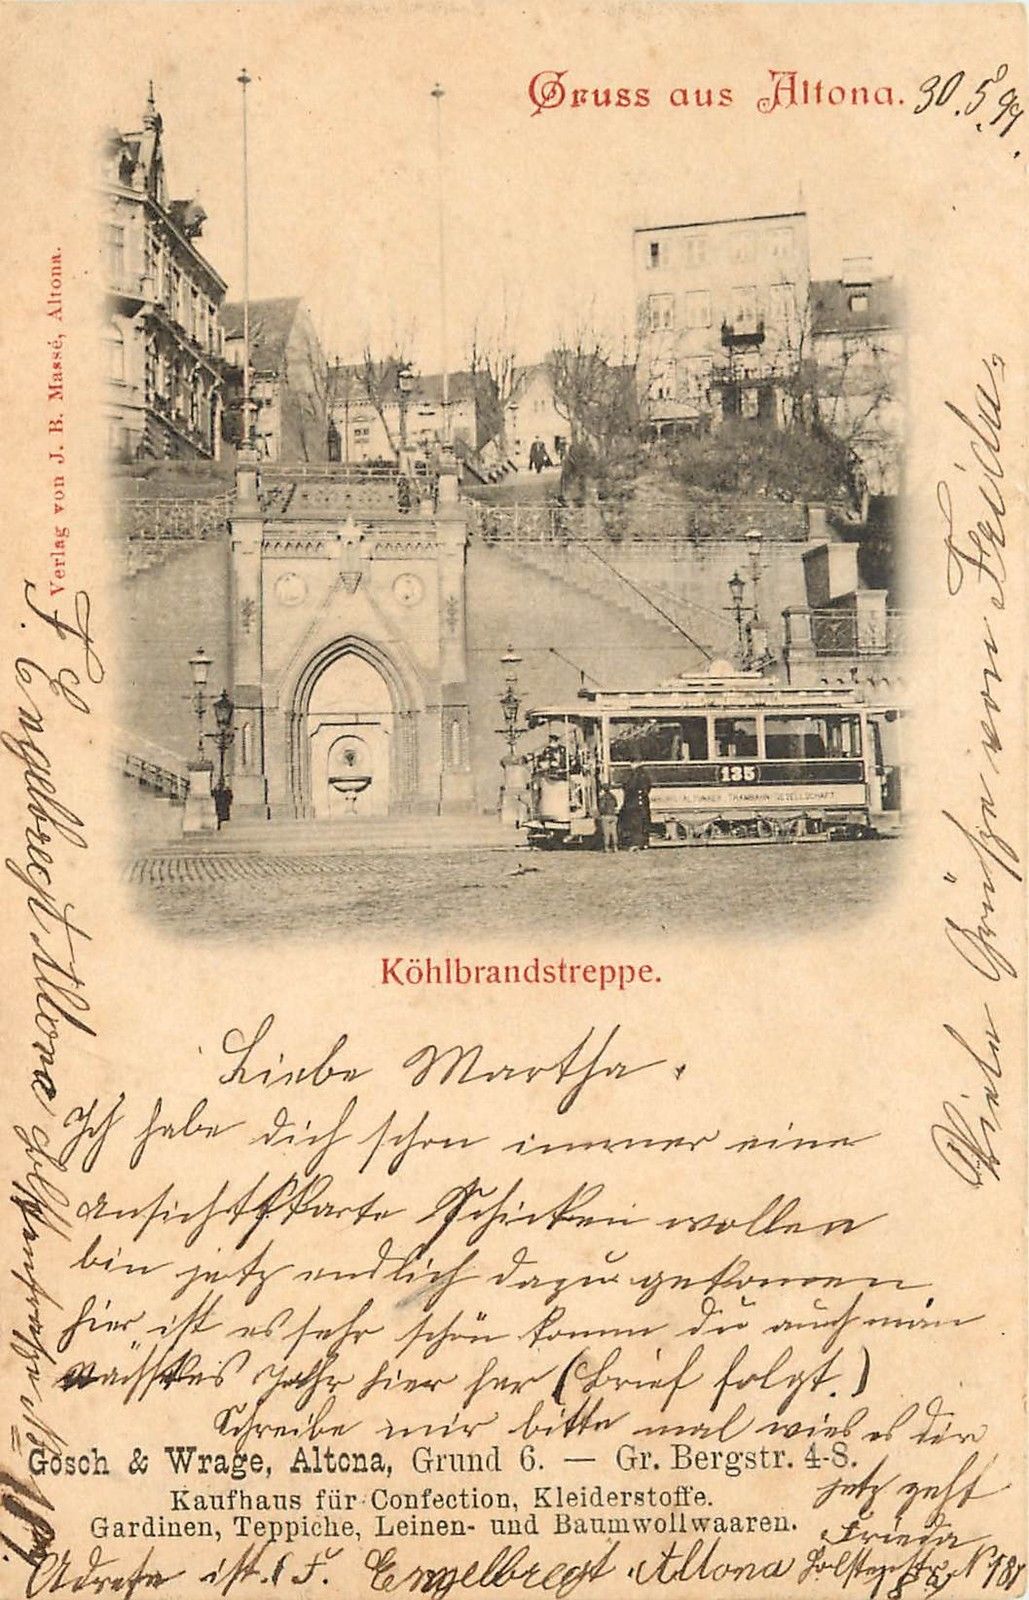 Gruss aus Altona.
30.5.99.
Verlag von J. B. Massé, Altona.
135
ALTONAER TRAMBAHN-GESELLSCHAFT
Köhlbrandstreppe.
Liebe Martha.
Ich habe dich schon immer eine
Ansichtskarte schicken wollen
bin jetz endlich dazu gekommen
hier ist es sehr schön komm du auch man
nächstes Jahr hier her (Brief folgt.)
Schreibe mir bitte mal wies es dir
jetz geht
Frieda
Gösch & Wrage, Altona, Grund 6. — Gr. Bergstr. 4-8.
Kaufhaus für Confection, Kleiderstoffe.
Gardinen, Teppiche, Leinen- und Baumwollwaaren.
Adresse ist. F. Engelbregt Altona Holstenstr. N 187
Viele Grüsze von Frida
F. Engelbrecht Altona Holstenstrasze No 187